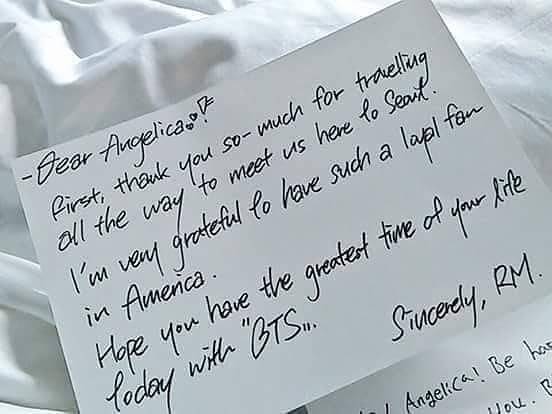 - Dear Angelica
First, thank you so-much for travelling
all the way to meet us here to Seoul.
I'm very grateful to have such a loyal fan
in America.
Hope you have the greatest time of your life
today with "BTS...
Sincerely, RM.
Angelica! Be
You.